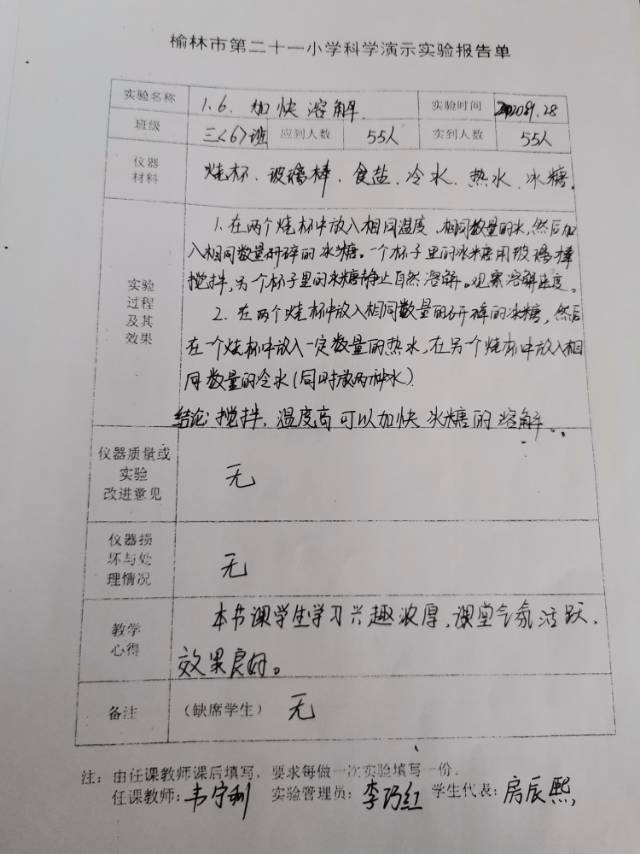 榆林市第二十一小学科学演示实验报告单
实验名称 1.6. 加快溶解 实验时间
班级 三<6>班 应到人数 55人 实到人数 55人
仪器
材料
烧杯、玻璃棒、食盐、冷水、热水、冰糖。
实验
过程
及其
效果
1.在两个烧杯中放入相同温度、相同数量的水,然后加
入相同数量研碎的冰糖。一个杯子里的冰糖用玻璃棒
搅拌,另个杯子里的冰糖静止自然溶解。观察溶解速度。
2.在两个烧杯中放入相同数量的研碎的冰糖,然后
在一个烧杯中放入一定数量的热水,在另个烧杯中放入相
同数量的冷水(同时放两种水)
结论:搅拌,温度高可以加快冰糖的溶解。
仪器质量或
实验
改进意见
无
仪器损
坏与处
理情况
无
教学
心得
本节课学生学习兴趣浓厚,课堂气氛活跃.
效果良好。
备注 (缺席学生) 无
注:由任课教师课后填写,要求每做一次实验填写一份.
任课教师:韦守利 实验管理员:李巧红 学生代表:房辰熙